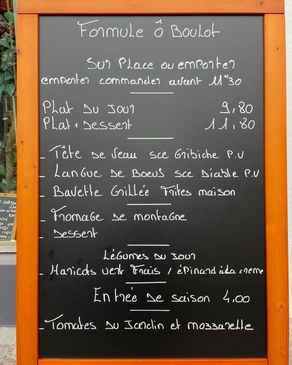 Formule Ô Boulot
Sur Place ou emporter
emporter commander avant 11H30
Plat du Jour 9,80
Plat + Dessert 11,80
- Tête de Veau sce Gribiche P.V
- Langue de Boeuf sce Diable P.V
- Bavette Grillée Frites maison
- Fromage de montagne
- Dessert
Légumes du Jour
- Haricots vert Frais / épinard à la crème
Entrée de saison 4,00
- Tomates du Jardin et mozzarelle